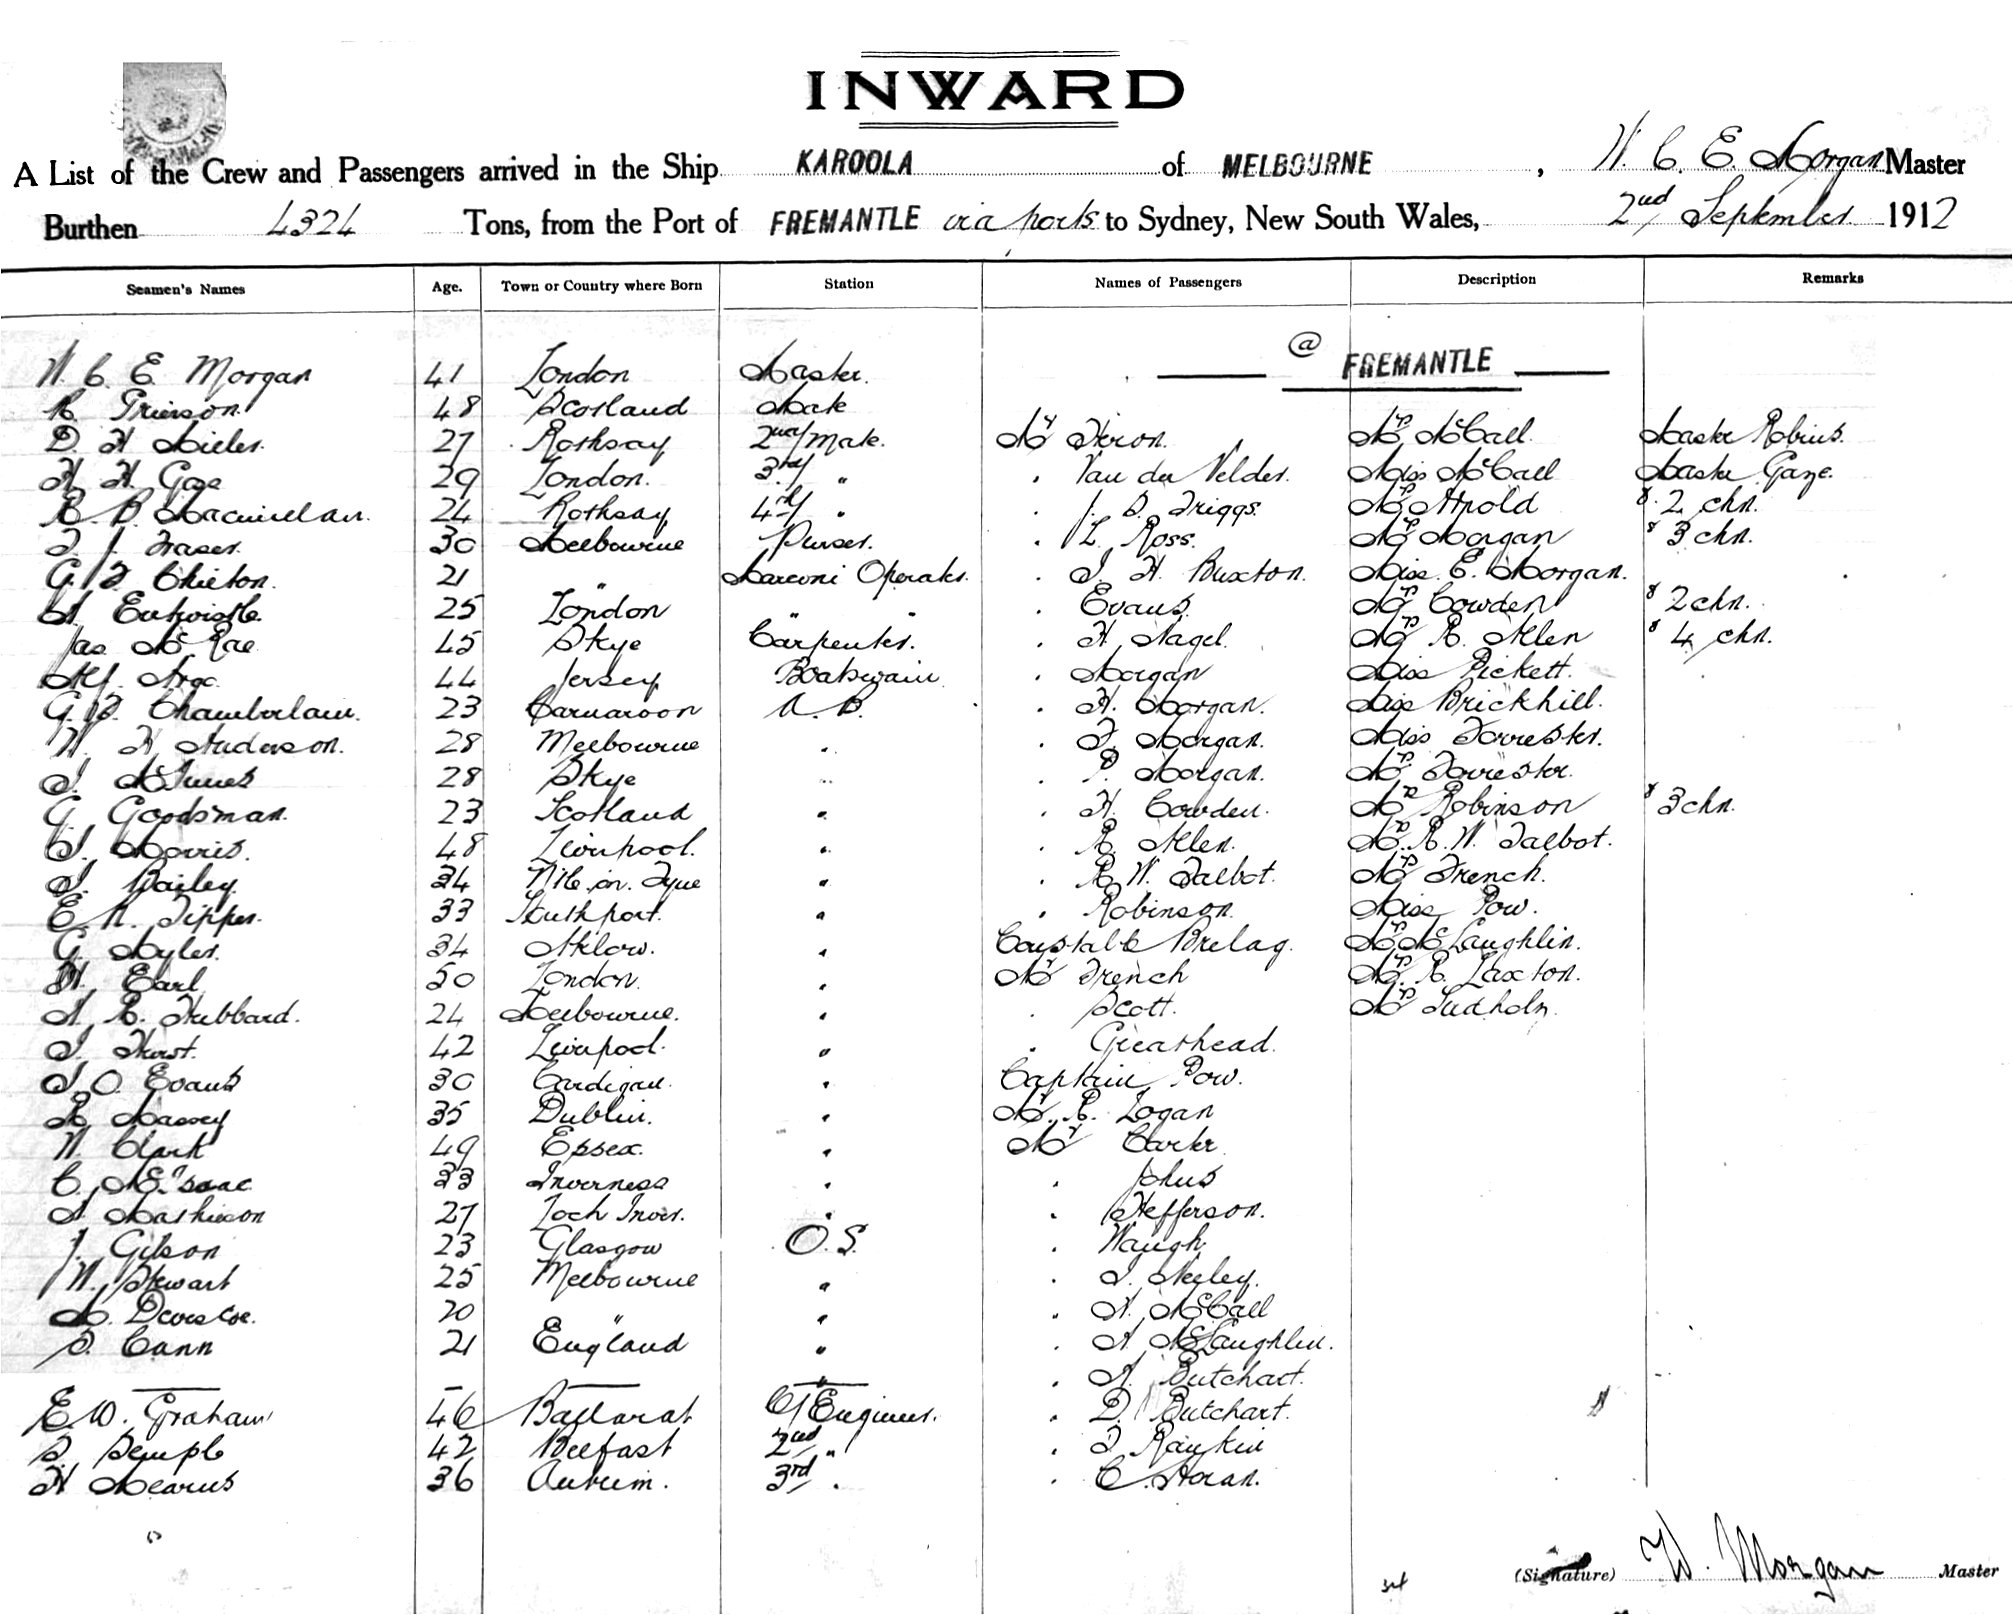 INWARD
A List of the Crew and Passengers arrived in the Ship KAROOLA of MELBOURNE, W. C. E. Morgan Master
Burthen 4324 Tons, from the Port of FREMANTLE via ports to Sydney, New South Wales, 2nd September 1912
Seamen's Names Age. Town or Country where Born Station Names of Passengers Description Remarks
@ FREMANTLE
W. C. E. Morgan 41 London Master.
R. Grierson. 48 Scotland Mate
D. H. 27 Rothsay 2nd/ Mate. Mr Heron. Mrs McCall. Master Robins.
H. H. 29 London. 3rd/ " . Van der Velder. Miss McCall Master Gaze.
R. B. Macmillan. 24 Rothsay 4th/ " . J. S. Triggs. Mrs Arnold & 2 chn.
T. J. Fraser. 30 Melbourne Purser. . L. Ross. Mrs Morgan & 3 chn.
G. F. Chilton. 21 " Marconi Operator. . J. H. Buxton. Miss E. Morgan.
A. Entwistle. 25 London " " . Evans. Mrs Cowden & 2 chn.
Jas McRae 45 Skye Carpenter. . H. Nagel. Mrs R. Allen & 4 chn.
Alf. 44 Jersey Boatswain . Morgan Miss Pickett.
G. F. Chamberlain. 23 Carnarvon A. B. . H. Morgan. Miss Brickhill.
W. H. Anderson. 28 Melbourne " . F. Morgan. Miss Forrester.
J. McInnes 28 Skye " . P. Morgan. Mrs Forrester.
G. Goodsman. 23 Scotland " . H. Cowden. Mrs Robinson & 3 chn.
J. Morris. 48 Liverpool. " . R. Allen. Mrs. R. W. Talbot.
J. Bailey. 34 N'tle on Tyne " . R. W. Talbot. Mrs French.
E. A. Tipper. 33 Southport. " . Robinson. Miss Pow.
G. Myles. 34 Arklow. " Constable Brelag. Mrs McLaughlin.
H. Earl 50 London. " Mr French Mrs. R. Laxton.
A. R. Hubbard. 24 Melbourne. " . Scott. Mrs Ludholm.
J. Hurst. 42 Liverpool. " . Greathead.
J. O. Evans 30 Cardigan. " Captain Pow.
R. Massey 35 Dublin. " Mr. R. Logan
W. Clark 49 Essex. " Mr Carter
C. McIsaac 33 Inverness " . Johns
A. Mathieson 27 Loch Inver. " . Hefferson.
J. Gibson 23 Glasgow O. S. . Waugh
W. Stewart 25 Melbourne " . J. Neeley.
20 " " . A. McCall
S. Cann 21 England " . A. McLaughlin.
" . A. Butchart.
E. W. Graham 46 Ballarat C/ Engineer. . D. Butchart.
S. Semple 42 Belfast 2nd " . J. Rankin
H Mearns 36 Antrim. 3rd " . C. Horan.
(Signature) W. Morgan Master